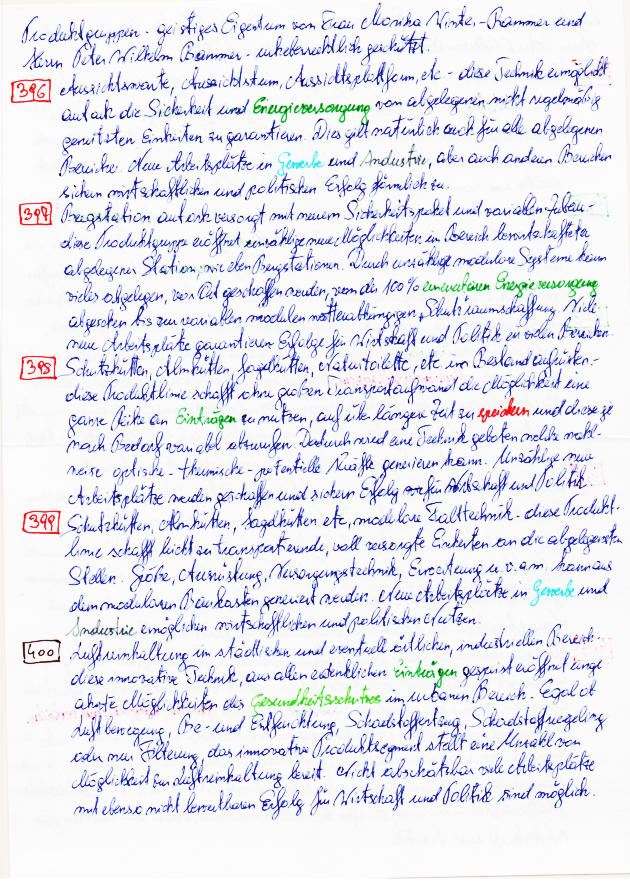 Produktgruppen - geistiges Eigentum von Frau Monika Winter-Bammer und
Herrn Peter Wilhelm Bammer - urheberrechtlich geschützt.
396 Aussichtswarte, Aussichtsturm, Aussichtsplattform, etc - diese Technik ermöglicht
autark die Sicherheit und Energieversorgung von abgelegenen nicht regelmäßig
genützten Einheiten zu garantieren. Dies gilt natürlich auch für alle abgelegenen
Bereiche. Neue Arbeitsplätze in Gewerbe und Industrie, aber auch anderen Bereichen
sichern wirtschaftlichen und politischen Erfolg förmlich zu.
397 Bergstation autark versorgt mit neuem Sicherheitspaket und variablen Zubau -
diese Produktgruppe eröffnet unzählige neue Möglichkeiten im Bereich bewirtschafteter
abgelegener Station, wie eben Bergstationen. Durch unzählige modulare Systeme kann
vieles abgelegen, vor Ort geschaffen werden, von der 100% erneuerbaren Energieversorgung
abgesehen bis zur variablen modulen wetterabhängigen Schutzraumschaffung. Viele
neue Arbeitsplätze garantieren Erfolge für Wirtschaft und Politik in vielen Bereichen.
398 Schutzhütten, Almhütten, Jagdhütten, Naturtoilette, etc im Bestand aufrüsten -
diese Produktlinie schafft ohne großen Transportaufwand die Möglichkeit eine
ganze Reihe an Einträgen zu nutzen, auf viele längere Zeit zu speichern und diese je
nach Bedarf variabel abzurufen. Dadurch wird eine Technik geboten welche wahl-
weise optische - thermische - potentielle Kräfte generieren kann. Unzählige neue
Arbeitsplätze werden geschaffen und sichern Erfolg für Wirtschaft und Politik.
399 Schutzhütten, Almhütten, Jagdhütten etc, modulare Falttechnik - diese Produkt-
linie schafft leicht zu transportierende, voll versorgte Einheiten an die abgelegensten
Stellen. Größe, Ausrüstung, Versorgungstechnik, Einrichtung u.v.a.m. kann aus
dem modularen Baukasten generiert werden. Neue Arbeitsplätze in Gewerbe und
Industrie ermöglichen wirtschaftlichen und politischen Nutzen.
400 Luftreinhaltung im städtischen und eventuell örtlichen, industriellen Bereich -
diese innovative Technik, aus allen erdenklichen Einträgen gespeist eröffnet unge
ahnte Möglichkeiten des Gesundheitsschutzes im urbanen Bereich. Egal ob
Luftbewegung, Be- und Entfeuchtung, Schadstoffentzug, Schadstoffregelung
oder nur Filterung, das innovative Produktsegment stellt eine Unzahl von
Möglichkeit zur Luftreinhaltung bereit. Nicht abschätzbar viele Arbeitsplätze
mit ebenso nicht bewertbaren Erfolg für Wirtschaft und Politik sind möglich.